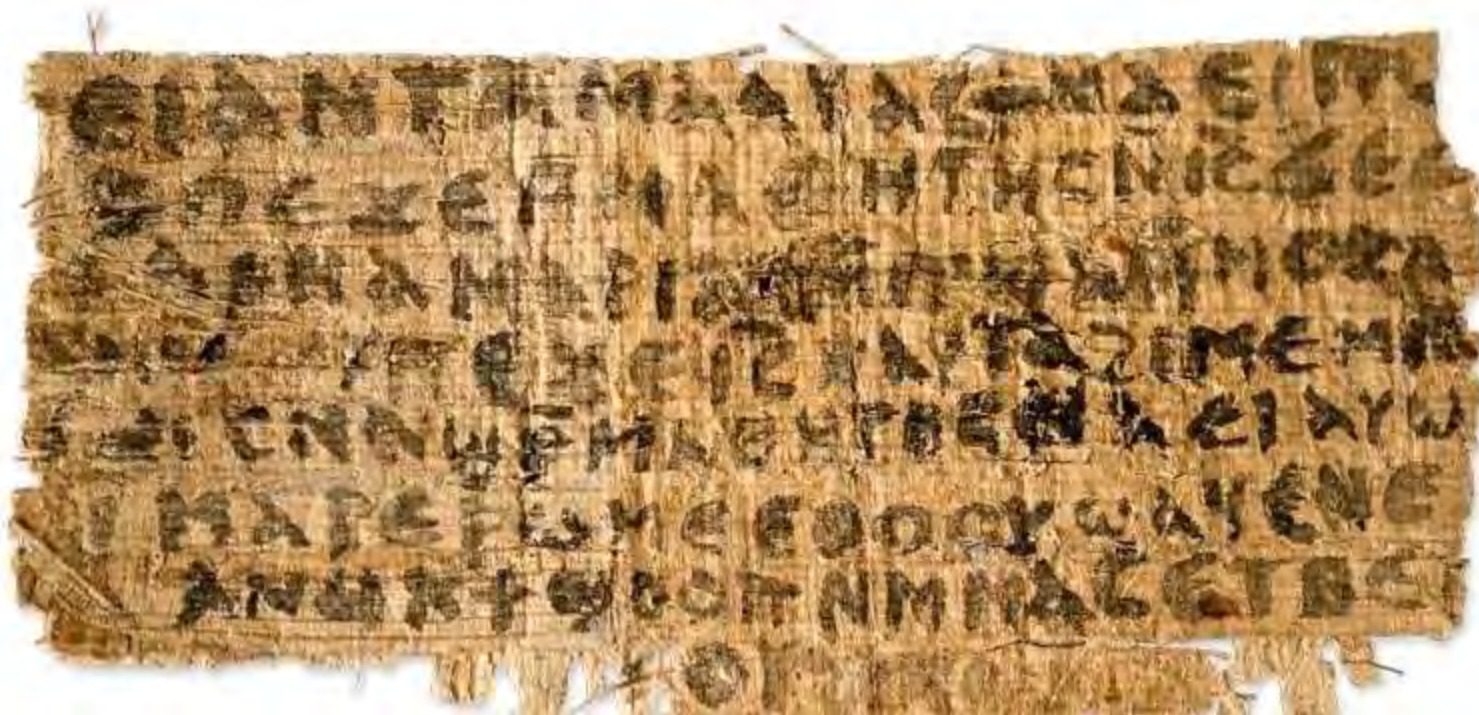 ⲉⲓ ⲁⲛ ⲧⲁⲙⲁⲁⲩ ⲁⲥϯ ⲛⲁⲉⲓ
ⲡⲉϫⲉ ⲙ̄ⲙⲁⲑⲏⲧⲏⲥ ⲛ̄ⲓ̄ⲥ̄ ϫⲉ ⲥ
ⲁⲣⲛⲁ ⲙⲁⲣⲓⲁⲙ ⲙ̄ⲡϣⲁ ⲙ̄ⲙⲟⲥ ⲁ
ⲡⲉϫⲉ ⲓ̄ⲥ̄ ⲛⲁⲩ ⲧⲁϩⲓⲙⲉ ⲙⲛ̄
ⲥⲛⲁϣⲣ̄ⲙⲁⲑⲏⲧⲏⲥ ⲛⲁⲉⲓ ⲁⲩⲱ
ⲓ ⲙⲁⲣⲉⲣⲱⲙⲉ ⲉⲑⲟⲟⲩ ϣⲁϥⲉ ⲛⲉ
ⲁⲛⲟⲕ ϯϣⲟⲟⲡ ⲛⲙ̄ⲙⲁⲥ ⲉⲧⲃⲉ